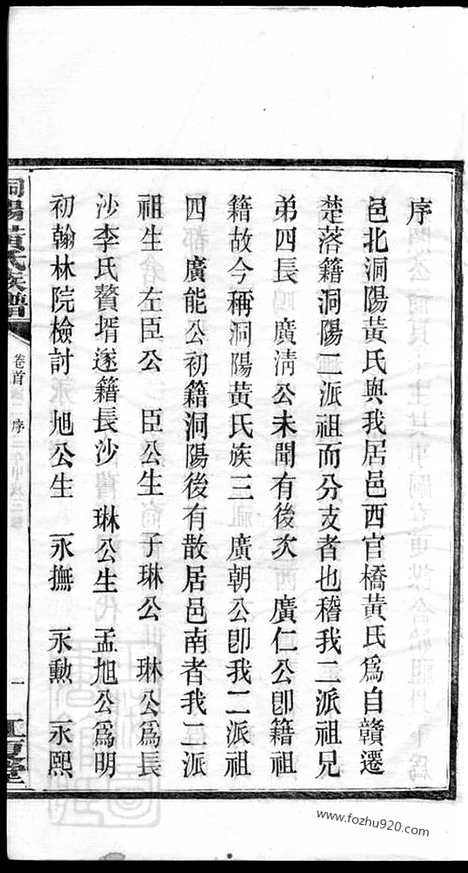 序
邑北洞陽黃氏與我居邑西官橋黃氏爲自贛遷
楚落籍洞陽二派祖而分支者也稽我二派祖兄
弟四長　廣淸公未聞有後次　廣仁公卽籍祖
籍故今稱洞陽黃氏族三　廣朝公卽我二派祖
四　廣能公初籍洞陽後有散居邑南者我二派
祖生　左臣公　臣公生　子琳公　琳公爲長
沙李氏贅壻遂籍長沙　琳公生　孟旭公爲明
初翰林院檢討　旭公生　永撫　永勳　永熙
洞陽黃氏族譜
卷首
序
一
江夏堂
www.fozhu920.com